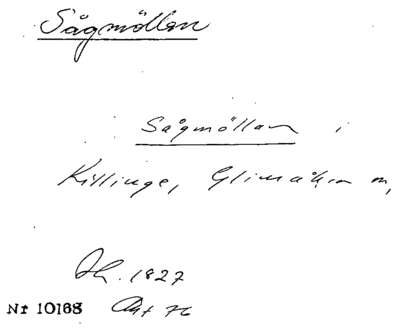 Sågmöllan
Sågmöllan i
Killinge, Glimåkra m,
Sk. 1827
Nr 10168 Akt 76